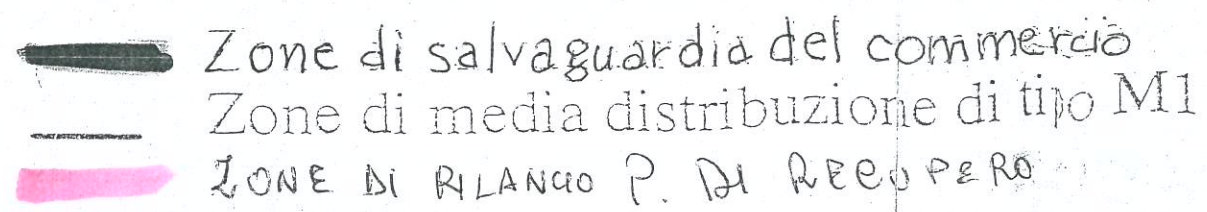 Zone di salvaguardia del commercio
Zone di media distribuzione di tipo M1
ZONE DI RILANCIO P. DI RECUPERO